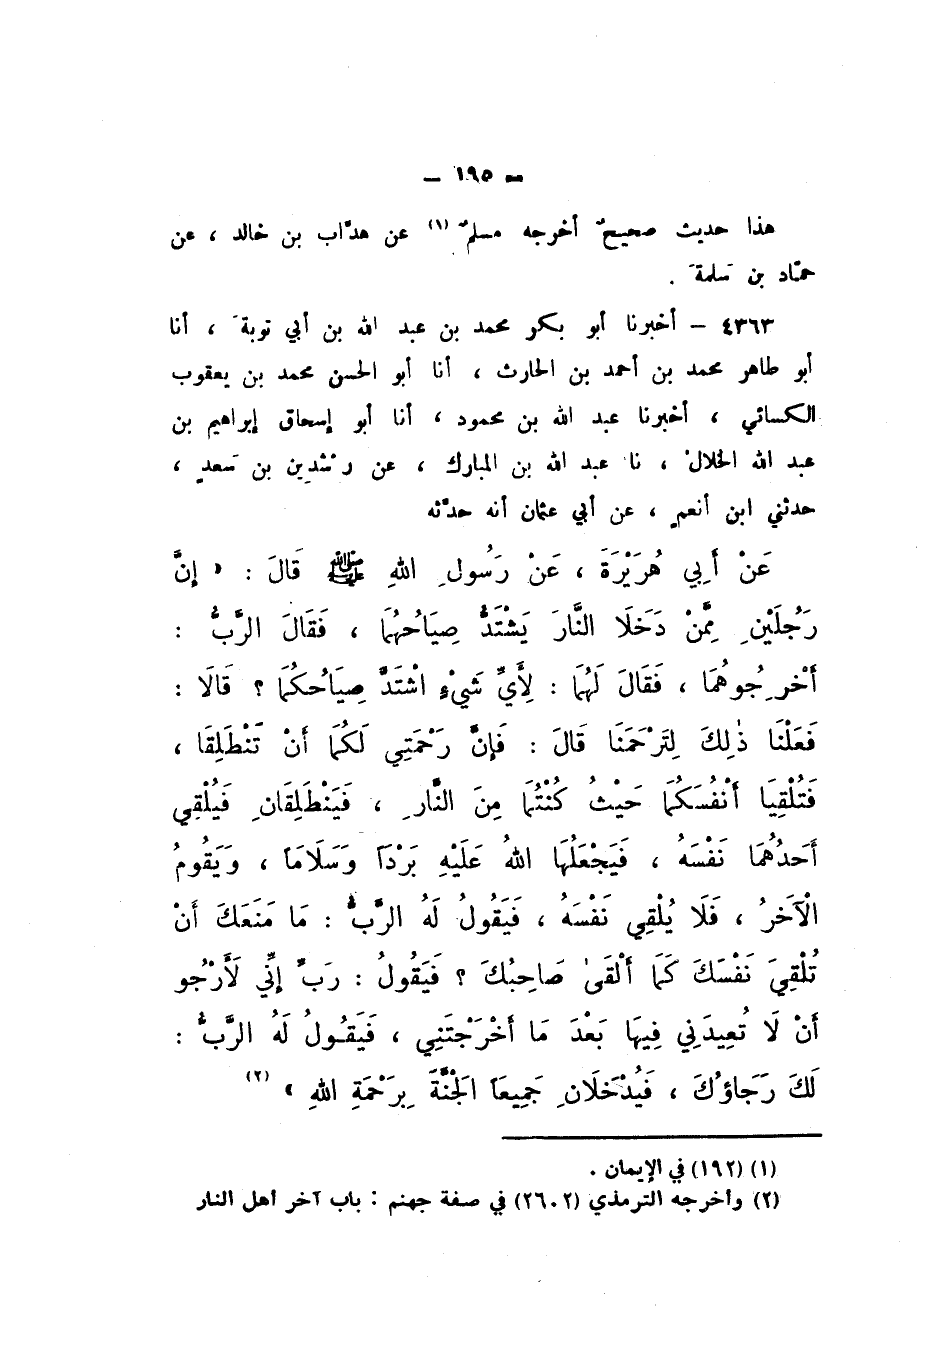 – ١٩٥ –
هذا حديث صحيحٌ أخرجه مسلمٌ (١) عن هدَّاب بن خالد ، عن
حمَّاد بن سَلمةَ .
٤٣٦٣ – أخبرنا أبو بكر محمد بن عبد الله بن أبي توبةَ ، أنا
أبو طاهر محمد بن أحمد بن الحارث ، أنا أبو الحسن محمد بن يعقوب
الكسائي ، أخبرنا عبد الله بن محمود ، أنا أبو إسحاق إبراهيم بن
عبد الله الخلالُ ، نا عبد الله بن المبارك ، عن رِشْدِين بن سَعدٍ ،
حدثني ابن أنعمٍ ، عن أبي عثمان أنه حدَّثه
عَنْ أَبِي هُرَيْرَةَ ، عَنْ رَسُولِ اللهِ ﷺ قَالَ : « إنَّ
رَجُلَيْنِ مِمَّنْ دَخَلَا النَّارَ يَشْتَدُّ صِيَاحُهُمَا ، فَقَالَ الرَّبُّ :
أَخْرِجُوهُمَا ، فَقَالَ لَهُمَا : لِأَيِّ شَيْءٍ اشْتَدَّ صِيَاحُكُمَا ؟ قَالَا :
فَعَلْنَا ذٰلِكَ لِتَرْحَمَنَا قَالَ : فَإِنَّ رَحْمَتِي لَكُمَا أَنْ تَنْطَلِقَا ،
فَتُلْقِيَا أَنْفُسَكُمَا حَيْثُ كُنْتُمَا مِنَ النَّارِ ، فَيَنْطَلِقَانِ فَيُلْقِي
أَحَدُهُمَا نَفْسَهُ ، فَيَجْعَلُهَا اللهُ عَلَيْهِ بَرْدَاً وَسَلَامَاً ، وَيَقُومُ
الْآخَرُ ، فَلَا يُلْقِي نَفْسَهُ ، فَيَقُولُ لَهُ الرَّبُّ : مَا مَنَعَكَ أَنْ
تُلْقِيَ نَفْسَكَ كَمَا أَلْقَىٰ صَاحِبُكَ ؟ فَيَقُولُ : رَبِّ إِنِّي لَأَرْجُو
أَنْ لَا تُعِيدَنِي فِيهَا بَعْدَ مَا أَخْرَجْتَنِي ، فَيَقُولُ لَهُ الرَّبُّ :
لَكَ رَجَاؤُكَ ، فَيُدْخَلَانِ جَمِيعَاً الْجَنَّةَ بِرَحْمَةِ اللهِ » (٢)
(١) (١٩٢) في الإيمان .
(٢) وأخرجه الترمذي (٢٦٠٢) في صفة جهنم : باب آخر أهل النار